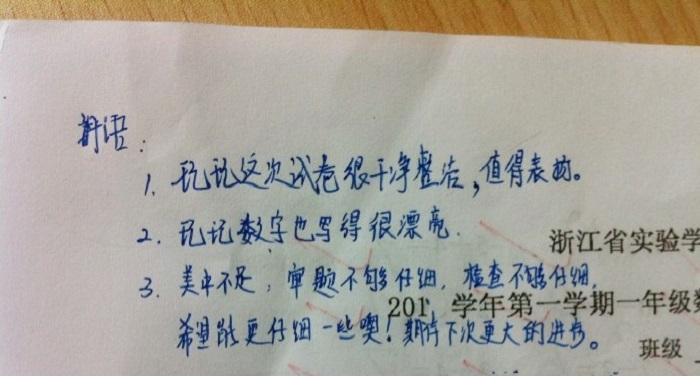 评语:
1. 玩玩这次试卷很干净整洁,值得表扬。
2. 记记数字也写得很漂亮.
浙江省实验学
3. 美中不足:审题不够仔细,检查不够仔细,
201 学年第一学期一年级数
希望能更仔细一些噢!期待下次更大的进步。
班级